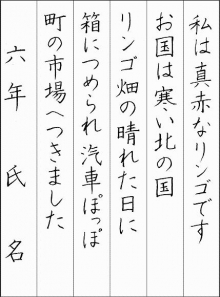 私は真赤なリンゴです
お国は寒い北の国
リンゴ畑の晴れた日に
箱につめられ汽車ぽっぽ
町の市場へつきました
六年 氏名